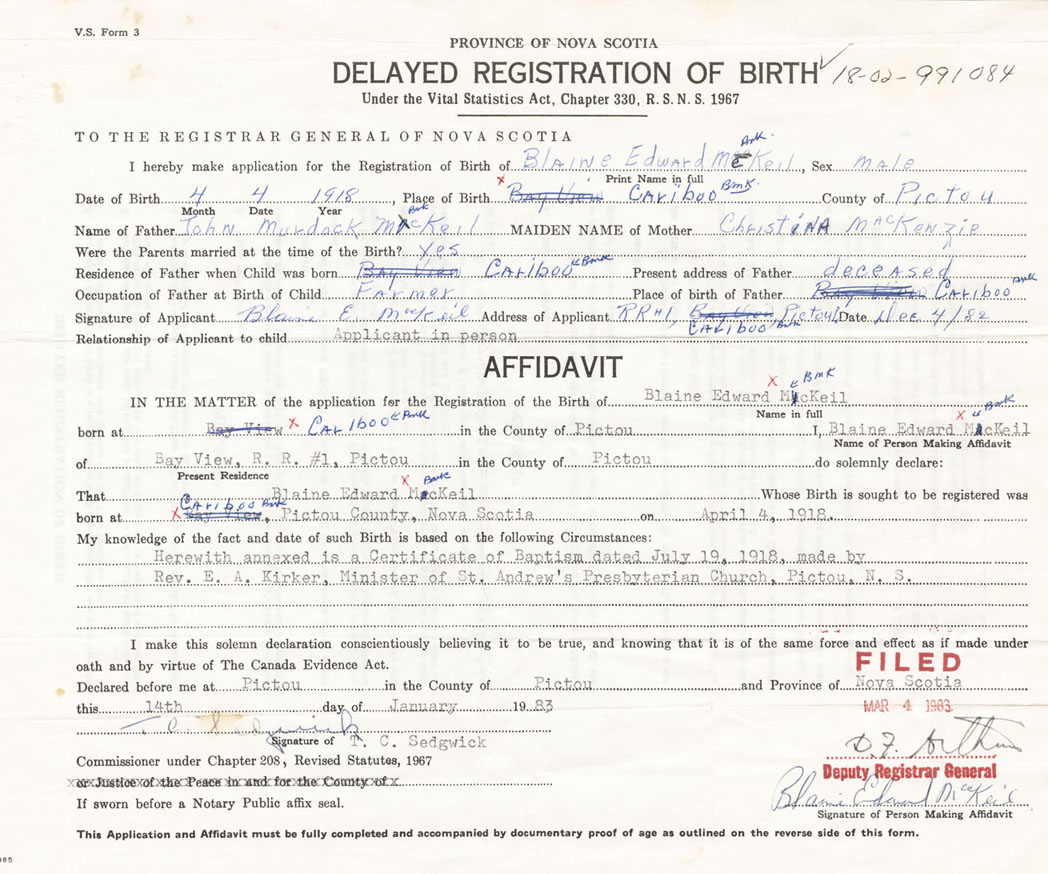 V.S. Form 3
PROVINCE OF NOVA SCOTIA
DELAYED REGISTRATION OF BIRTH 18-02-991084
Under the Vital Statistics Act, Chapter 330, R.S.N.S. 1967
TO THE REGISTRAR GENERAL OF NOVA SCOTIA
BmK.
I hereby make application for the Registration of Birth of Blaine Edward McKeil, Sex male
Print Name in full
Date of Birth 4 4 1918, Place of Birth x Bay View Cariboo BmK. County of Pictou
Month Date Year BmK
Name of Father John Murdock McKeil MAIDEN NAME of Mother Christina MacKenzie
Were the Parents married at the time of the Birth? yes
Residence of Father when Child was born Bay View Cariboo BmK Present address of Father deceased
Occupation of Father at Birth of Child Farmer Place of birth of Father Bay View Cariboo BmK
Signature of Applicant Blaine E. MacKeil Address of Applicant RR#1, Bay View Pictou Date Dec 4/82
Cariboo BmK
Relationship of Applicant to child Applicant in person
AFFIDAVIT
IN THE MATTER of the application for the Registration of the Birth of Blaine Edward McKeil x BmK
Name in full x BmK
born at Bay View x Cariboo BmK in the County of Pictou I, Blaine Edward McKeil
Name of Person Making Affidavit
of Bay View, R. R. #1, Pictou in the County of Pictou do solemnly declare:
Present Residence x BmK
That Blaine Edward McKeil Whose Birth is sought to be registered was
Cariboo BmK
born at x Bay View, Pictou County, Nova Scotia on April 4, 1918.
My knowledge of the fact and date of such Birth is based on the following Circumstances:
Herewith annexed is a Certificate of Baptism dated July 19, 1918, made by
Rev. E. A. Kirker, Minister of St. Andrew's Presbyterian Church, Pictou, N. S.
I make this solemn declaration conscientiously believing it to be true, and knowing that it is of the same force and effect as if made under
oath and by virtue of The Canada Evidence Act.
FILED
Declared before me at Pictou in the County of Pictou and Province of Nova Scotia
this 14th day of January 1983
MAR 4 1983
T. C. Sedgwick
Signature of T. C. Sedgwick
D.F. Arthur
Commissioner under Chapter 208, Revised Statutes, 1967
Deputy Registrar General
or Justice of the Peace in and for the County of
Blaine Edward McKeil
If sworn before a Notary Public affix seal.
Signature of Person Making Affidavit
This Application and Affidavit must be fully completed and accompanied by documentary proof of age as outlined on the reverse side of this form.